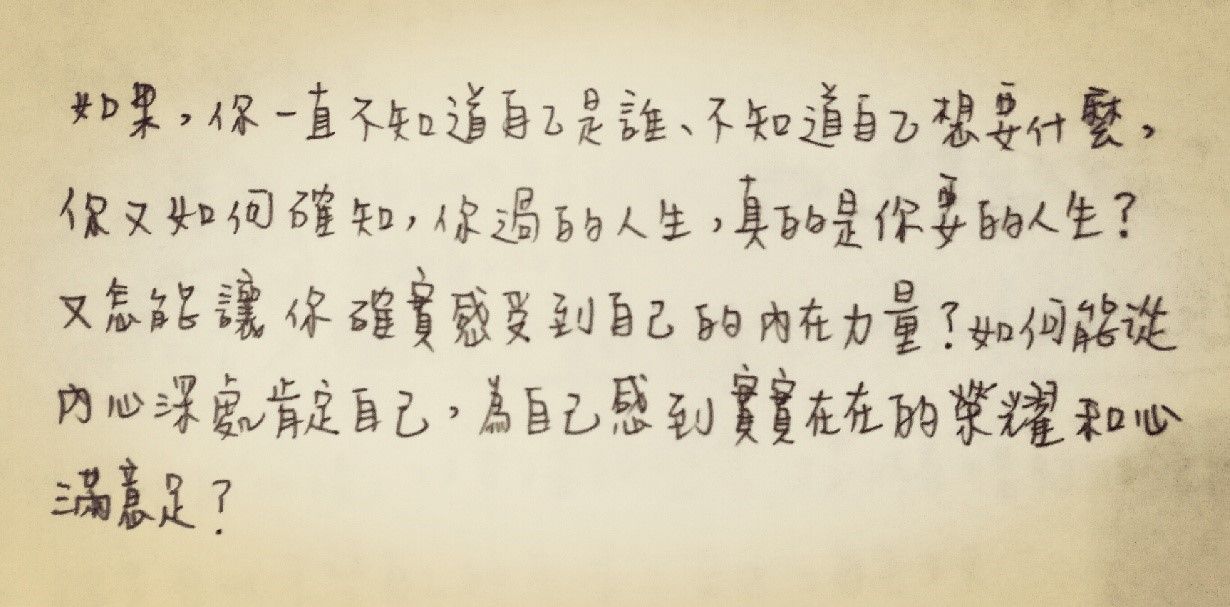 如果，你一直不知道自己是誰、不知道自己想要什麼，
你又如何確知，你過的人生，真的是你要的人生？
又怎能讓你確實感受到自己的內在力量？如何能從
內心深處肯定自己，為自己感到實實在在的榮耀和心
滿意足？